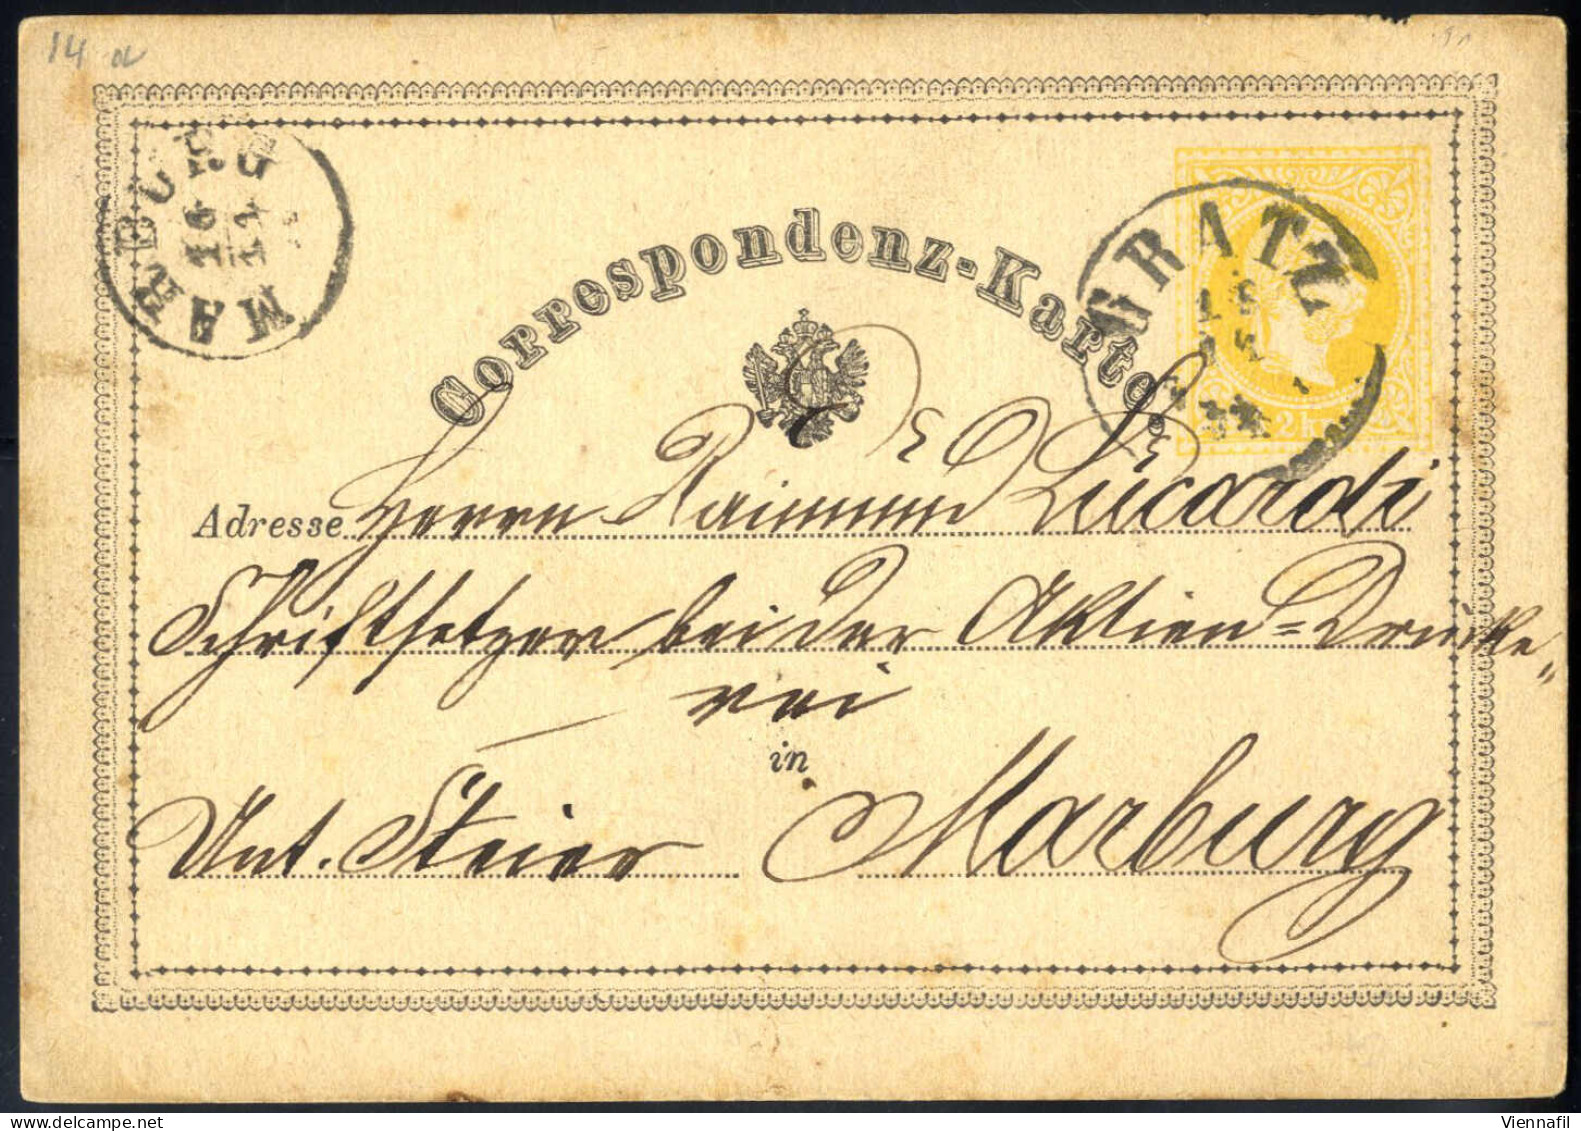 14 a
MARBURG
16
11
Correspondenz-Karte
GRATZ
2 k
Adresse Herrn Raimund Lucardi
Schriftsetzer bei der Aktien=Drucke„
rei
in
Unt. Steier Marburg
Viennafil